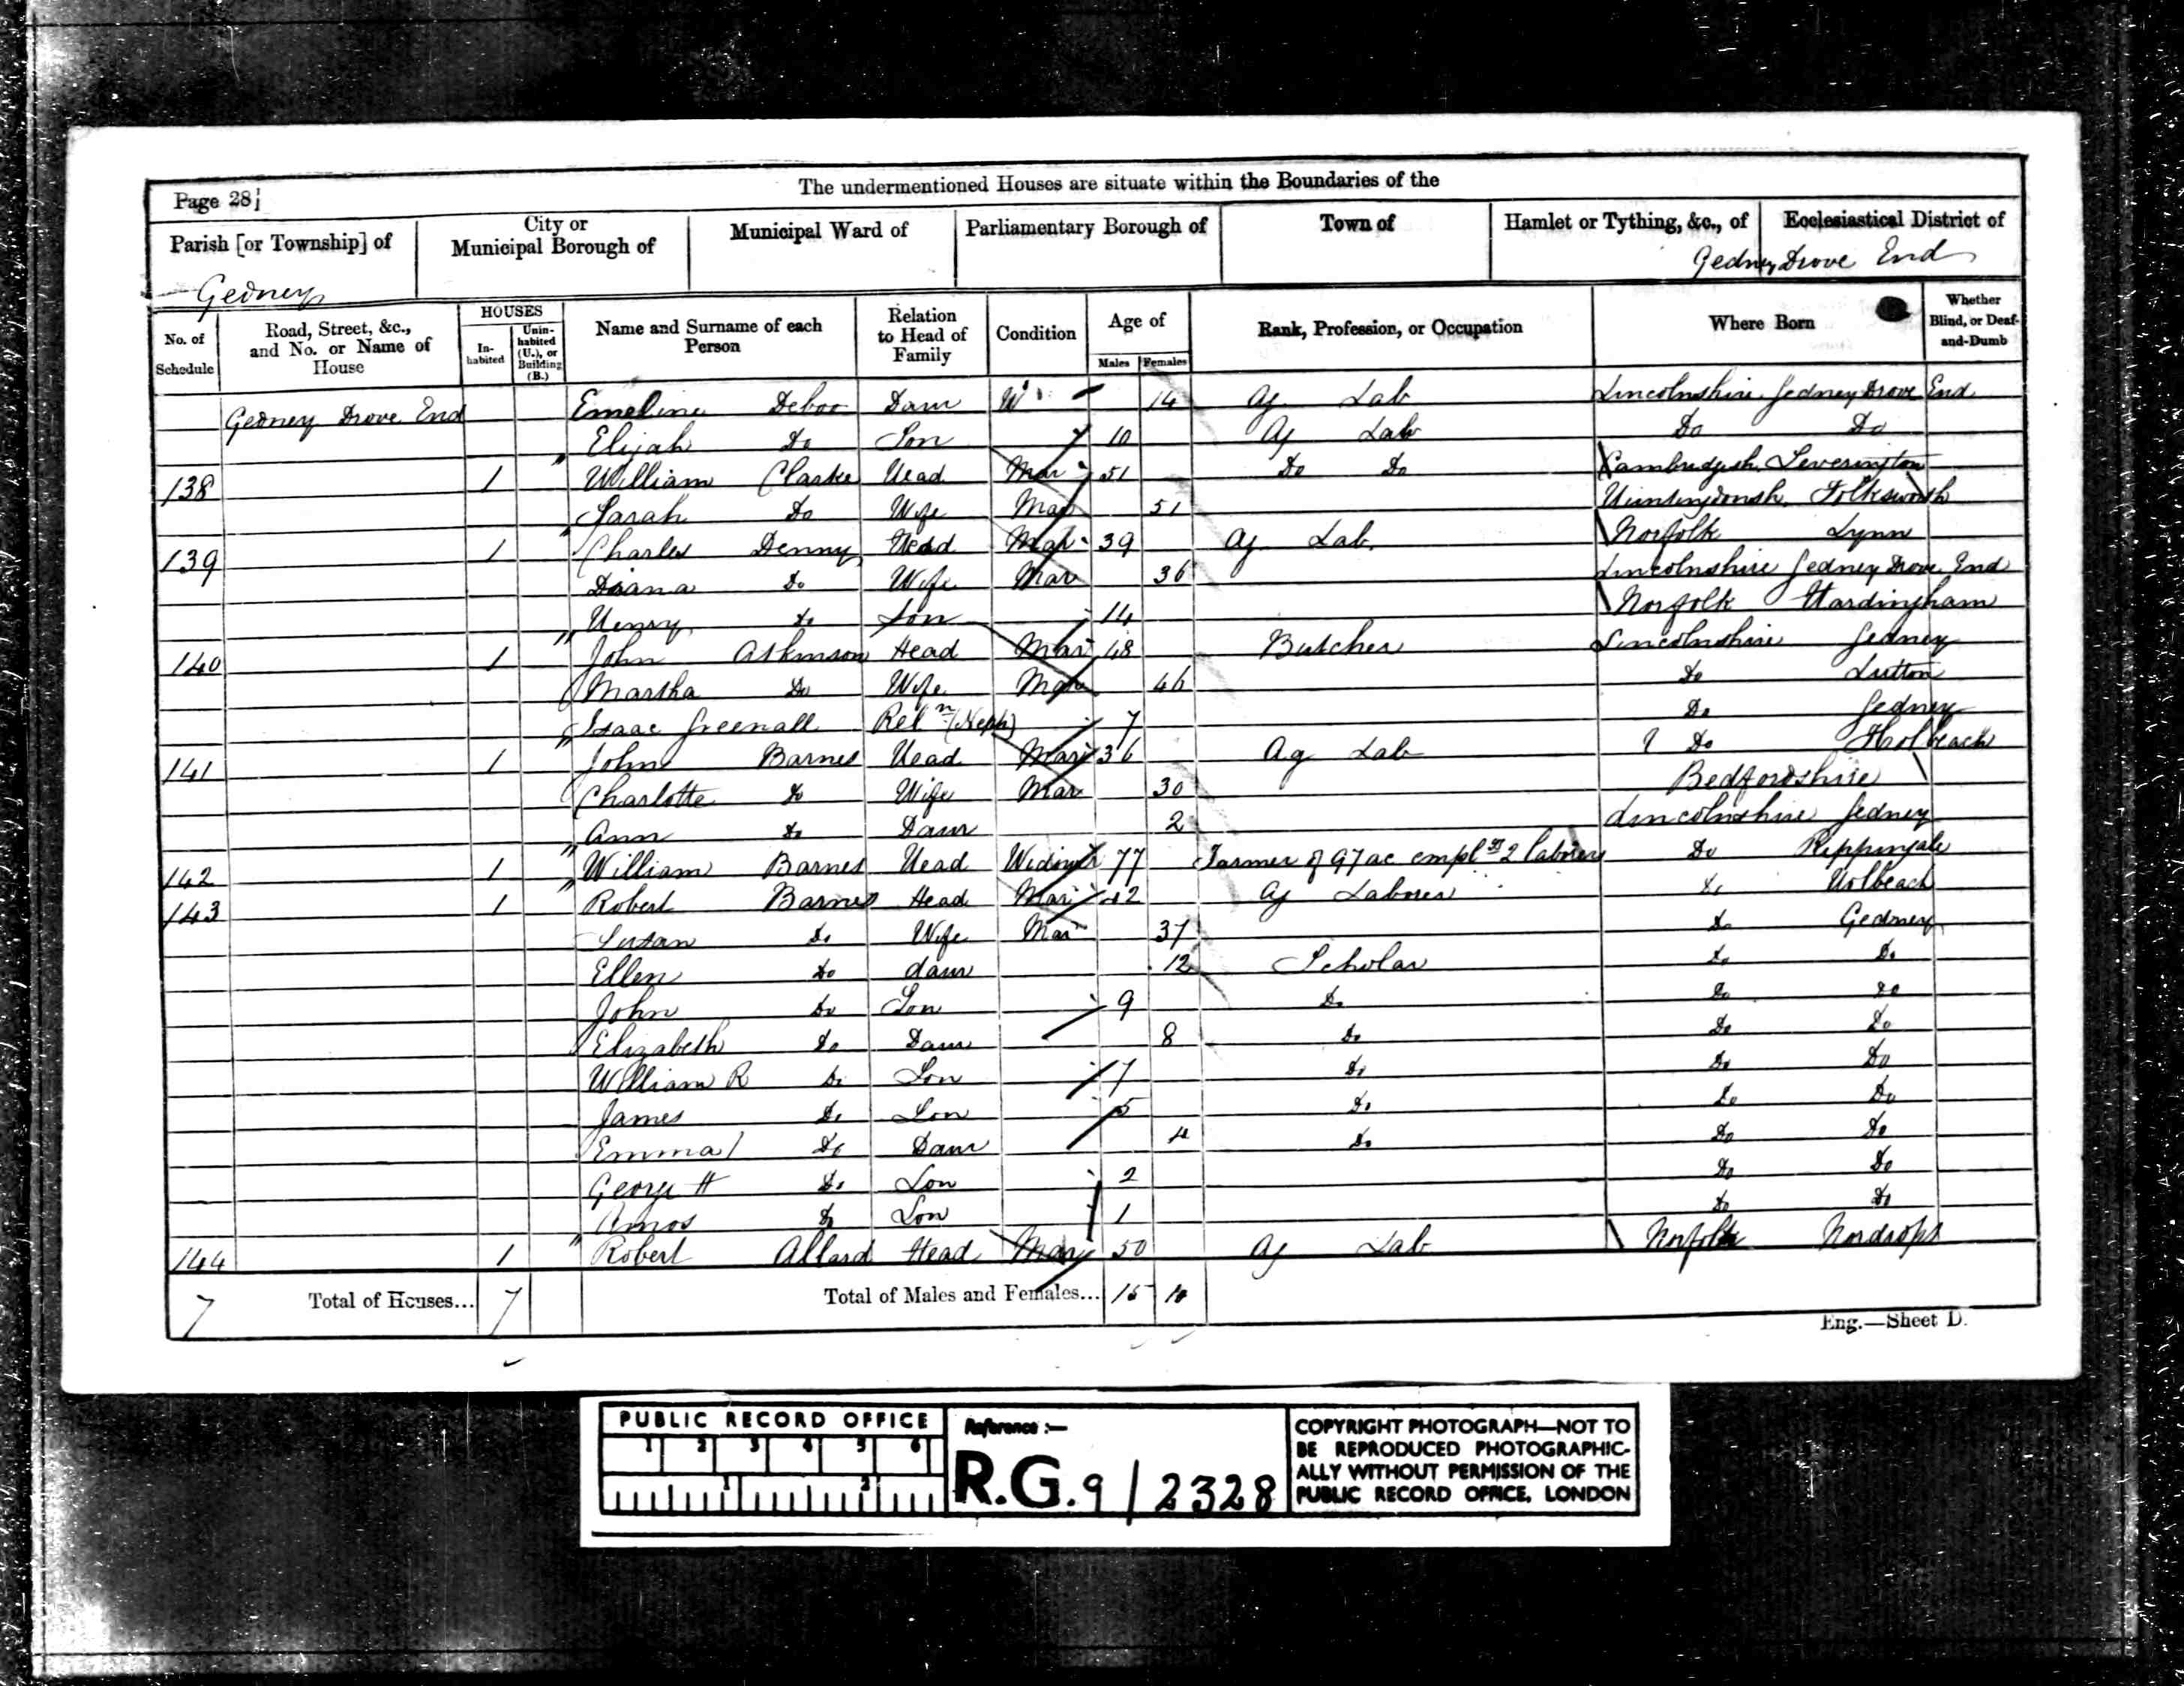 The undermentioned Houses are situate within the Boundaries of the
Page 28
Parish [or Township] of City or Municipal Borough of Municipal Ward of Parliamentary Borough of Town of Hamlet or Tything, &c., of Ecclesiastical District of
Gedney Gedney Drove End
No. of Schedule Road, Street, &c., and No. or Name of House HOUSES In-habited Unin-habited (U.), or Building (B.) Name and Surname of each Person Relation to Head of Family Condition Age of Males Females Rank, Profession, or Occupation Where Born Whether Blind, or Deaf-and-Dumb
Gedney Drove End Emeline Deboo Daur 14 Ag Lab Lincolnshire Gedney Drove End
Elijah Do Son 10 Ag Lab Do Do
138 1 William Clarke Head Mar 51 Do Do Cambridgesh. Leverington
Sarah Do Wife Mar 51 Huntingdonsh. Folksworth
139 1 Charles Denny Head Mar 39 Ag Lab. Norfolk Lynn
Diana Do Wife Mar 36 Lincolnshire Gedney Drove End
Henry Do Son 14 Norfolk Hardingham
140 1 John Atkinson Head Mar 48 Butcher Lincolnshire Gedney
Martha Do Wife Mar 46 Do Lutton
Isaac Greenall Reln (Neph) 7 Do Gedney
141 1 John Barnes Head Mar 36 Ag Lab Do Holbeach
Charlotte Do Wife Mar 30 Bedfordshire
Ann Do Daur 2 Lincolnshire Gedney
142 1 William Barnes Head Widowr 77 Farmer of 97 ac empl 2 laborers Do Rippingale
143 1 Robert Barnes Head Mar 42 Ag Laborer Do Holbeach
Susan Do Wife Mar 37 Do Gedney
Ellen Do daur 12 Scholar Do Do
John Do Son 9 Do Do Do
Elizabeth Do Daur 8 Do Do Do
William R Do Son 7 Do Do Do
James Do Son 5 Do Do Do
Emma Do Daur 4 Do Do Do
George H Do Son 2 Do Do
Amos Do Son 1 Do Do
144 1 Robert Allard Head Mar 50 Ag Lab Norfolk
7 Total of Houses... 7 Total of Males and Females... 15 10
Eng.—Sheet D.
PUBLIC RECORD OFFICE
1 2 3 4 5 6
1 2
Reference :—
R.G. 9/2328
COPYRIGHT PHOTOGRAPH—NOT TO
BE REPRODUCED PHOTOGRAPHIC-
ALLY WITHOUT PERMISSION OF THE
PUBLIC RECORD OFFICE, LONDON